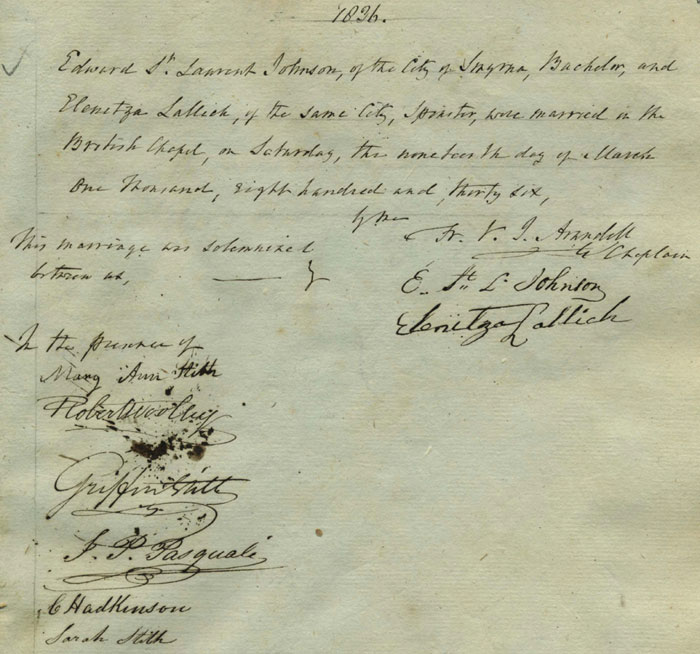 1836.
Edward St. Laurent Johnson, of the City of Smyrna, Bachelor, and
Elenitza Lallich, of the same City, Spinster, were married in the
British Chapel, on Saturday, the nineteenth day of March
One Thousand, eight hundred and, thirty six,
by me
Fr. V. J. Arundell
Chaplain
This marriage was solemnized
between us,
E. St. L. Johnson
Elenitza Lallich
In the presence of
Mary Ann Stith
Robert Wolley
Griffin Stith
J. P. Pasquali
C Hadkinson
Sarah Stith